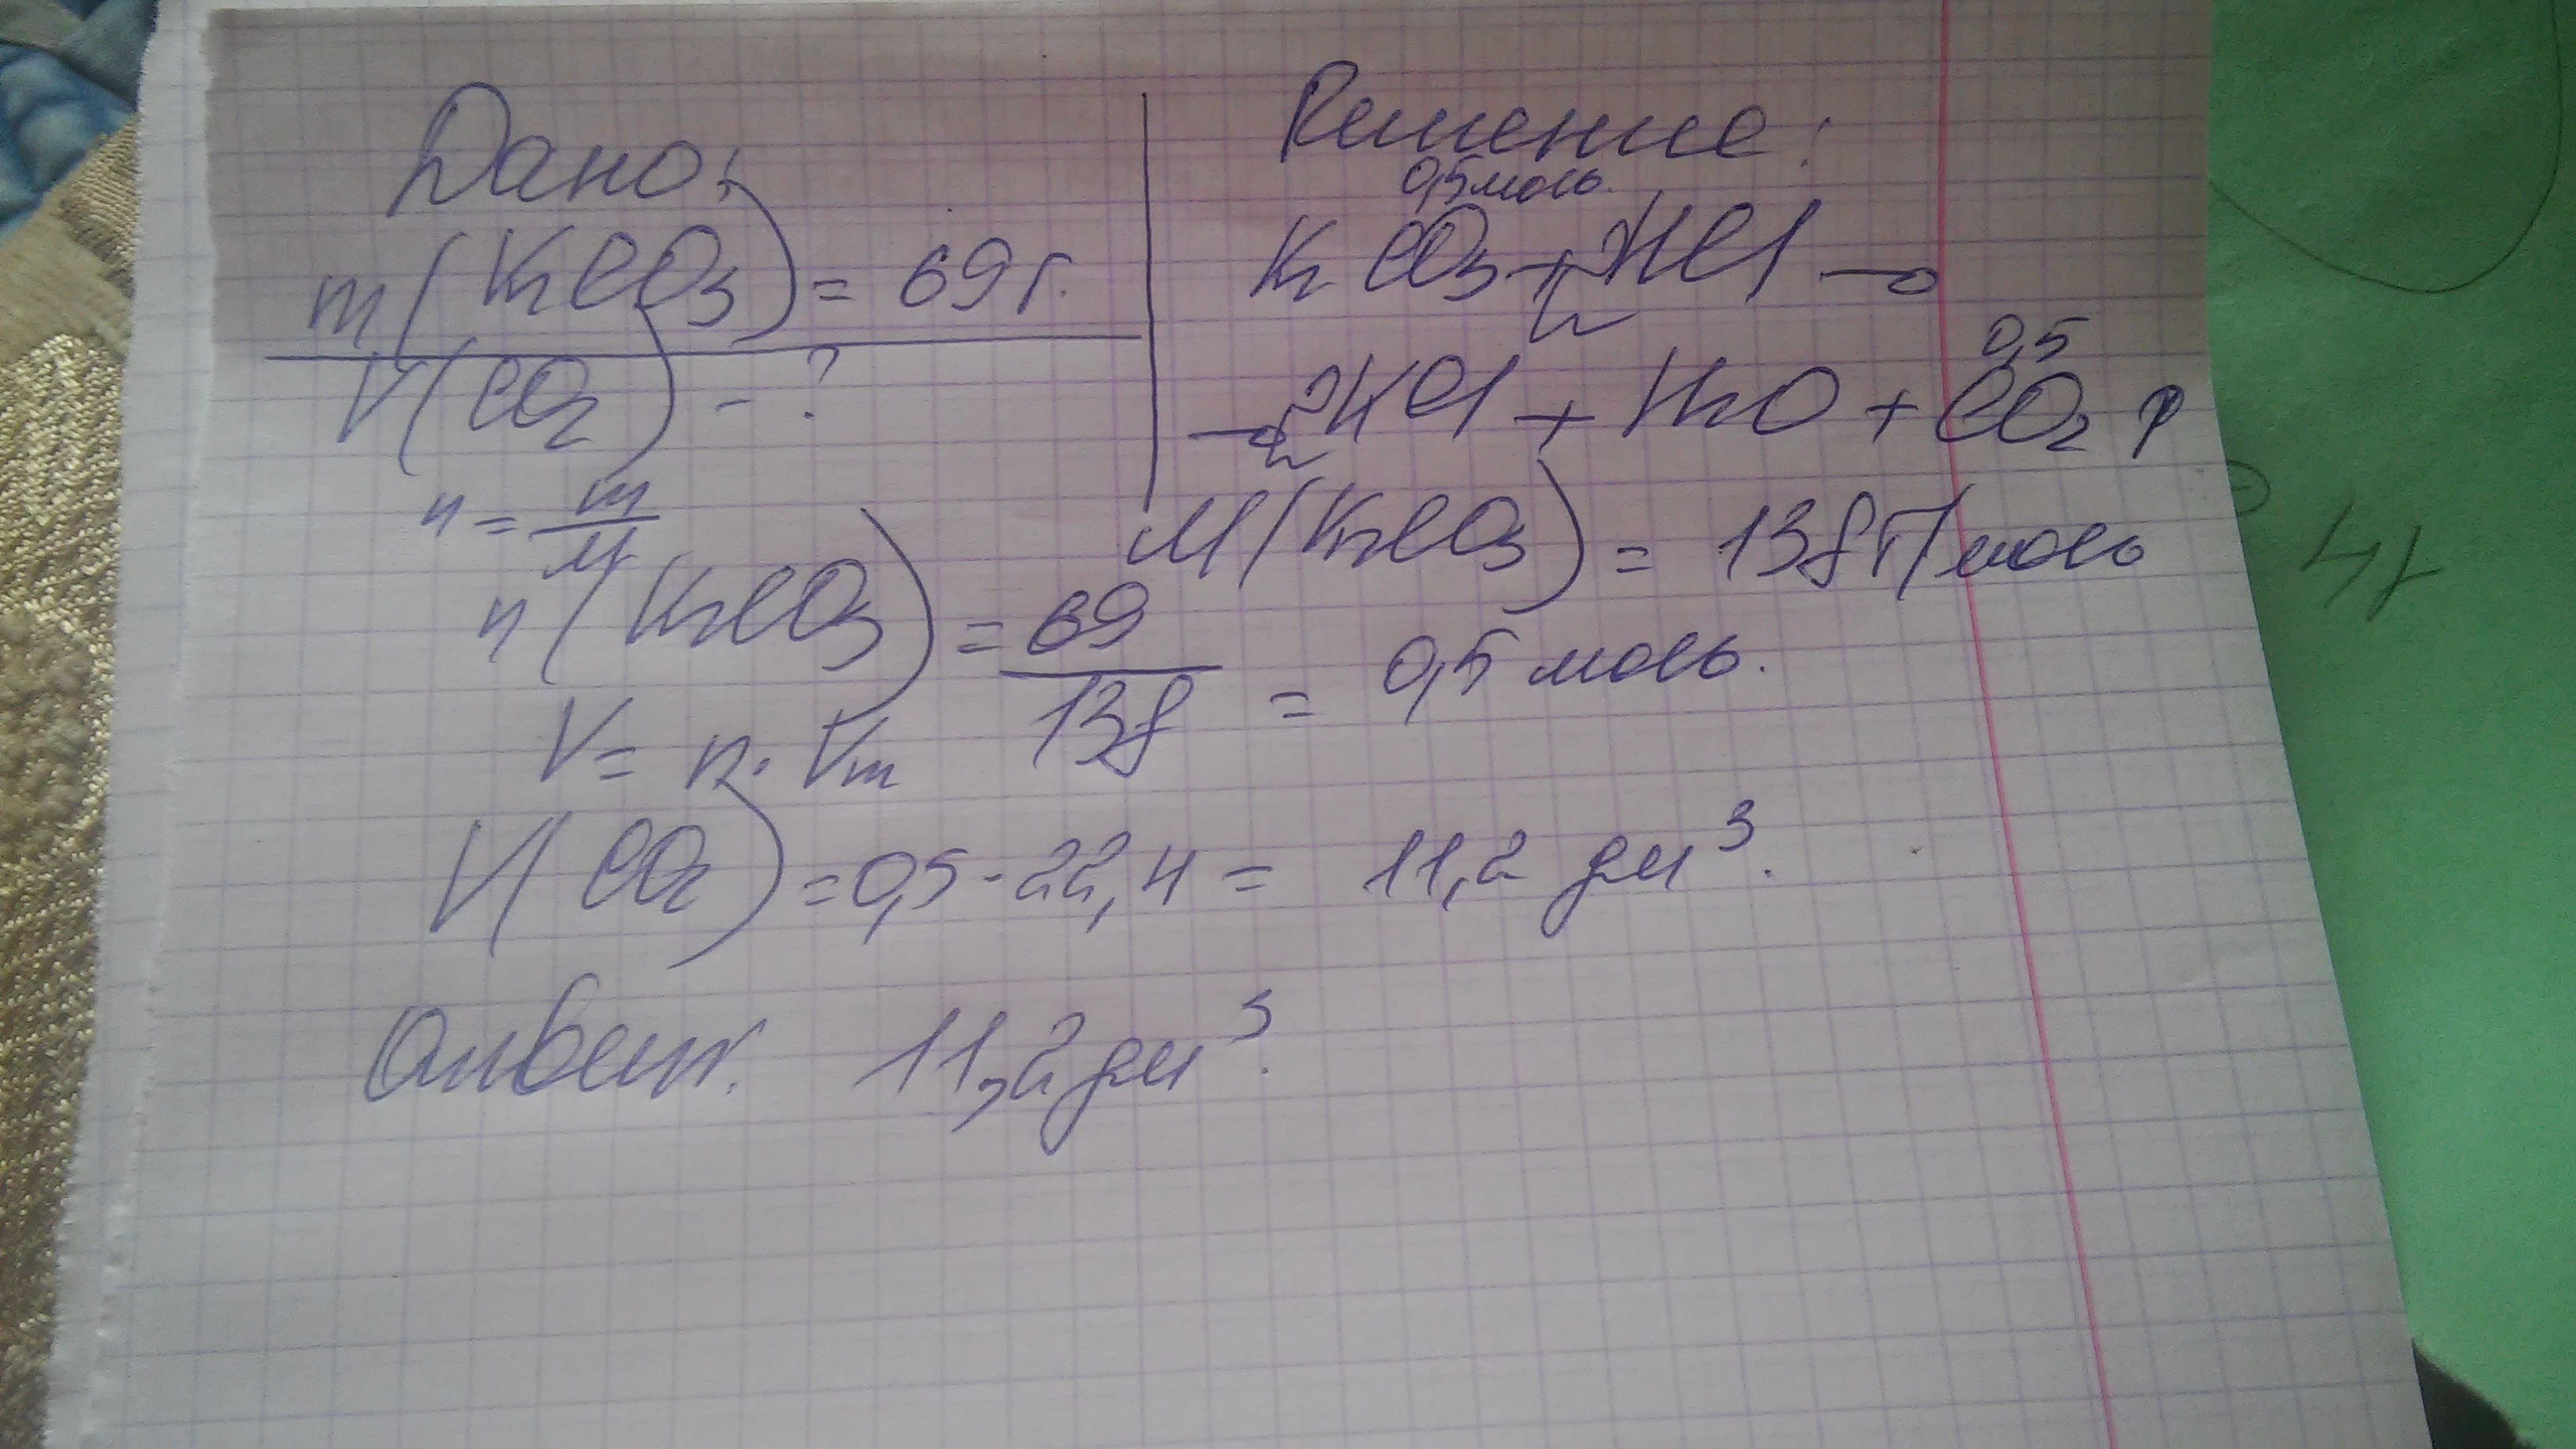 Дано:
m(K₂CO₃) = 69 г.
V(CO₂) - ?
Решение:
0,5 моль.
K₂CO₃ + 2HCl →
0,5
→ 2KCl + H₂O + CO₂ ↑
n = m/M
M(K₂CO₃) = 138 г/моль
n(K₂CO₃) = 69/138 = 0,5 моль.
V = n · Vm
V(CO₂) = 0,5 · 22,4 = 11,2 дм³.
Ответ. 11,2 дм³.